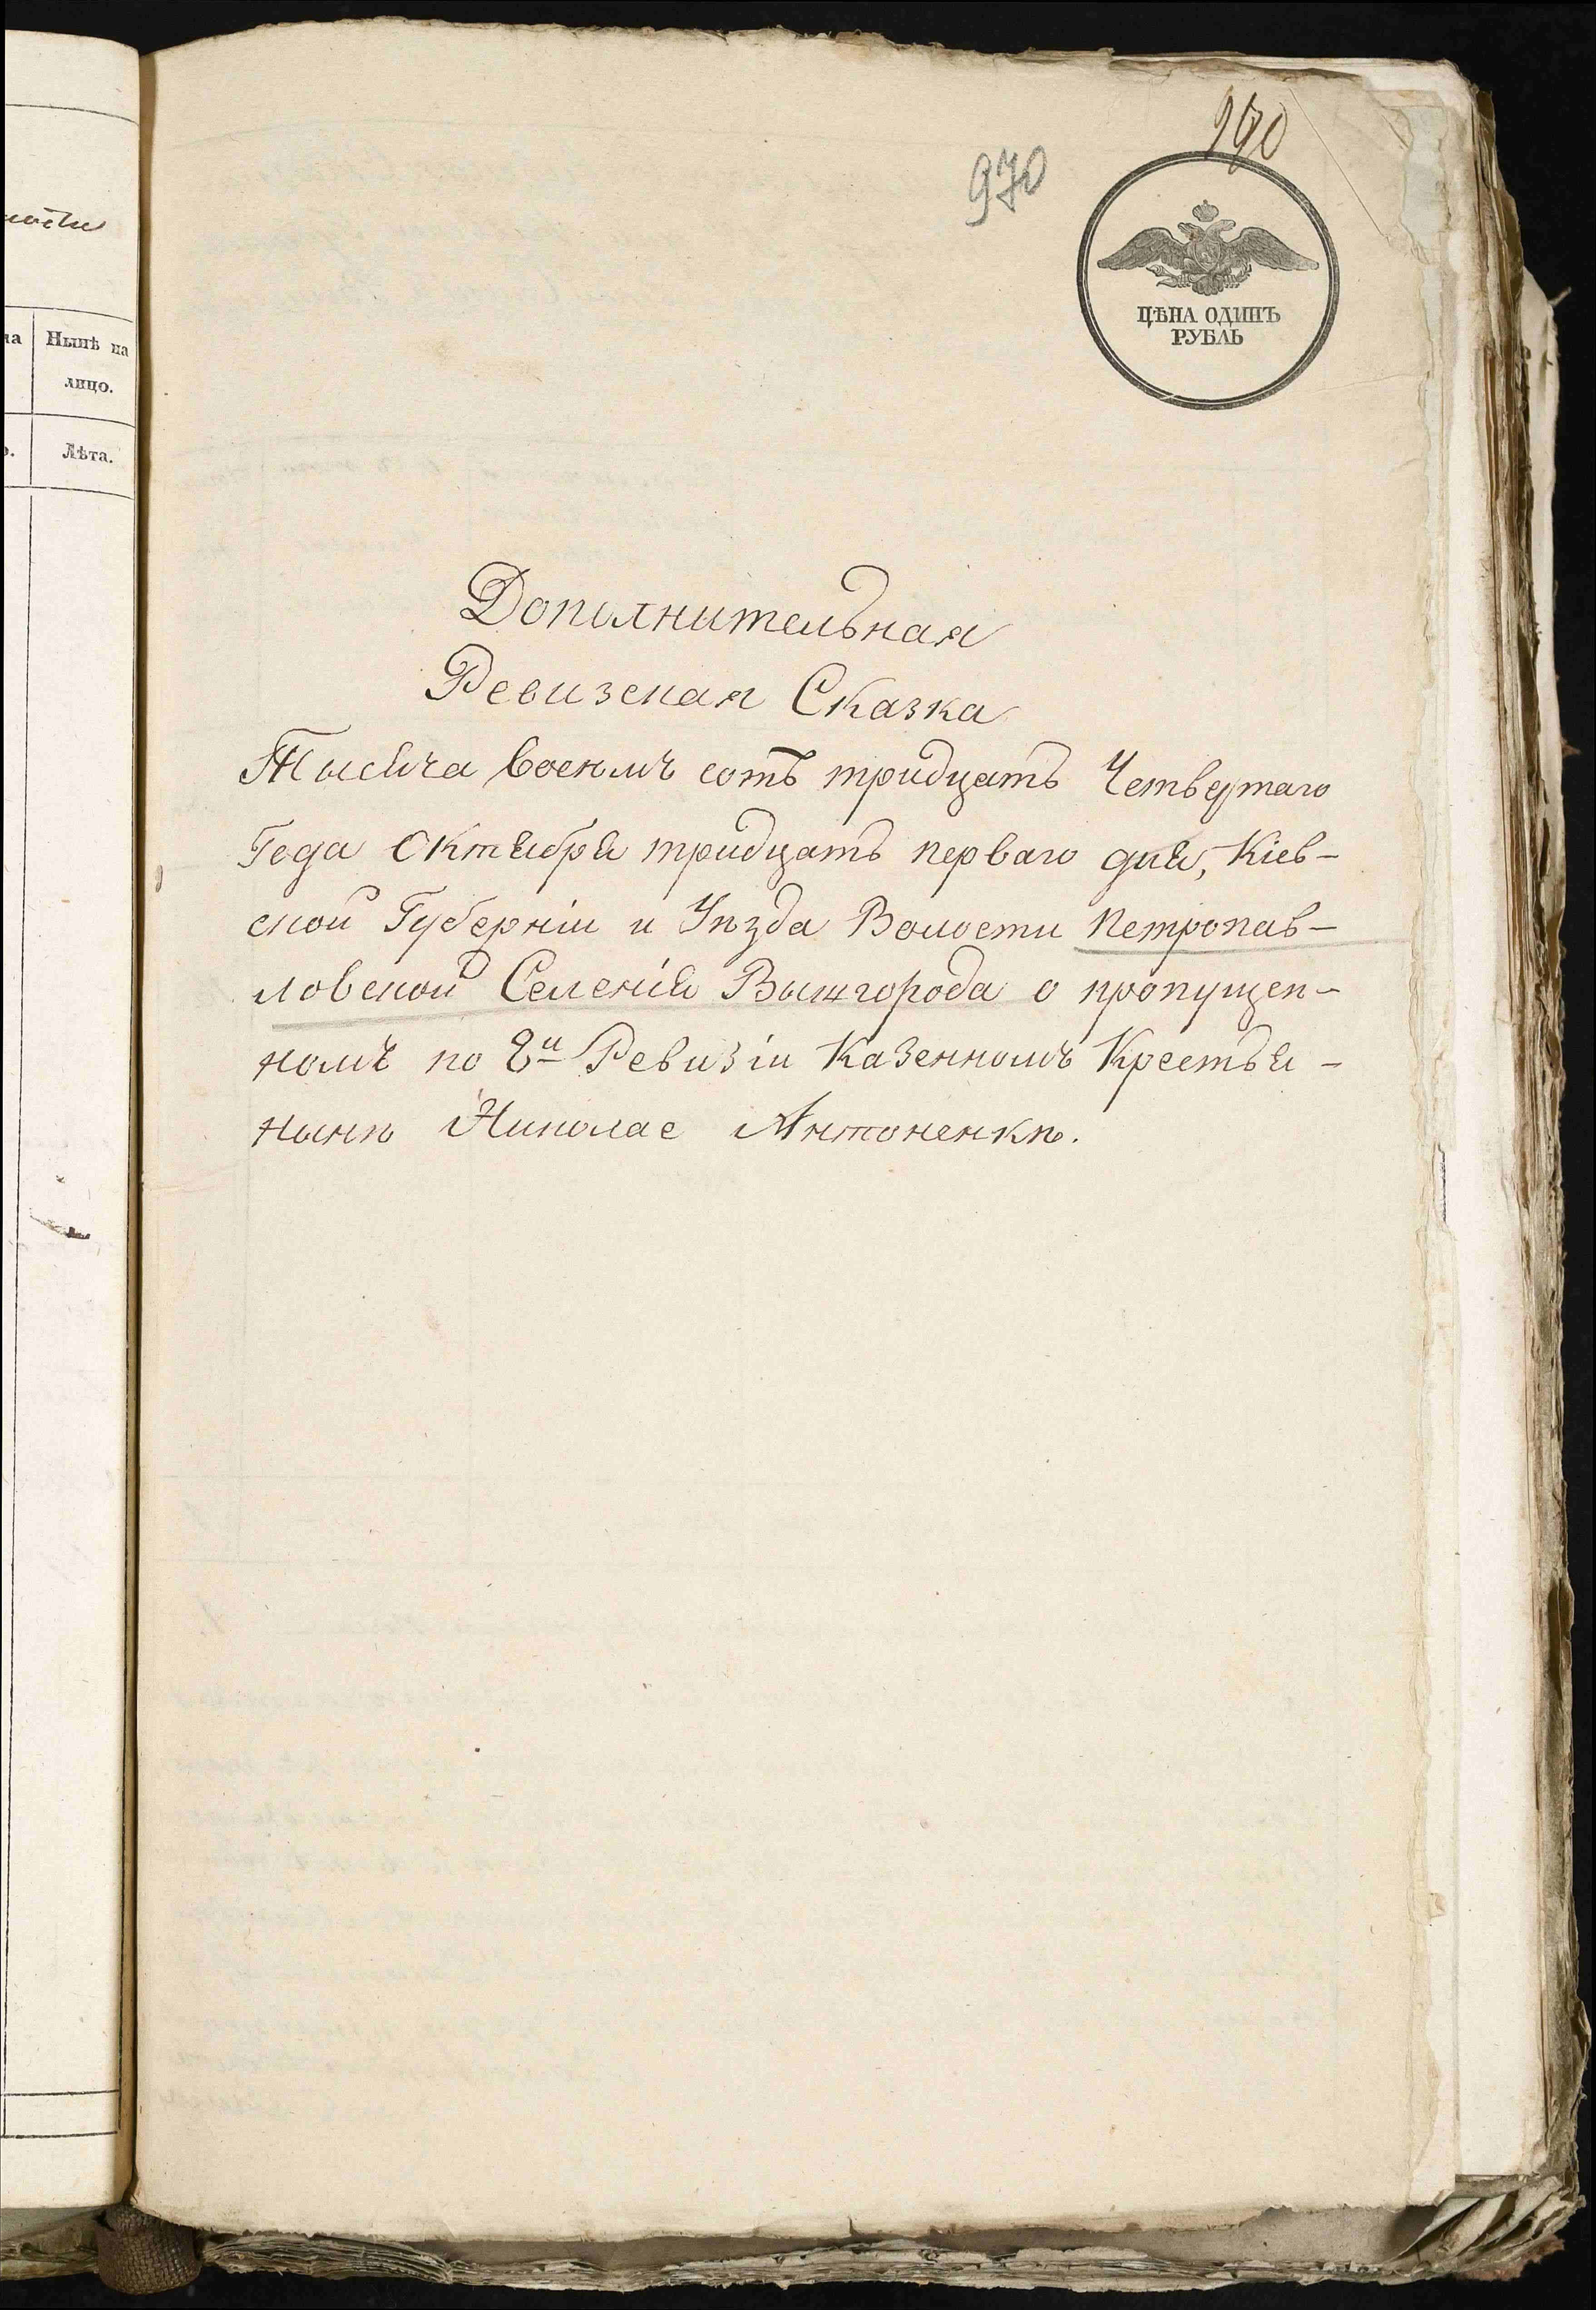 ности
на
Нынѣ на
лицо.
Лѣта.
970
970
ЦѢНА ОДИНЪ
РУБЛЬ
Дополнительная
Ревизская Сказка
Тысяча восемъ сотъ тридцать Четвертаго
Года Октября тридцать перваго дня, Кіев-
ской Губерніи и Уѣзда Волости Петропав-
ловской Селенія Вышгорода о пропущен-
номъ по 8й Ревизіи Казенномъ Крестья-
нинѣ Николае Антоненкѣ.